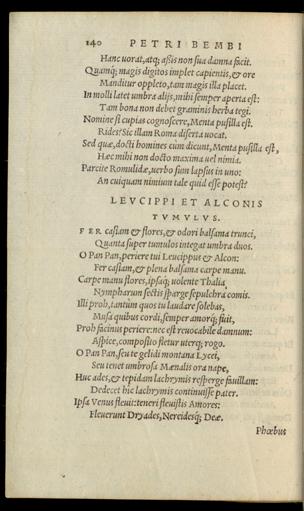 140 PETRI BEMBI
Hanc uorat, atq; assis non sua danna facit.
Quamq́; magis digitos implet capientis, & ore
Manditur oppleto, tam magis illa placet.
In molli latet umbra alijs, mihi semper aperta est:
Tam bona non debet graminis herba tegi.
Nomine si cupias cognoscere, Menta pusilla est.
Rides? Sic illam Roma diserta uocat.
Sed quæ, docti homines cum dicunt, Menta pusilla est,
Hæc mihi non docto maxima uel nimia.
Parcite Romulidæ, uerbo sum lapsus in uno:
An cuiquam nimium tale quid esse potest?
LEVCIPPI ET ALCONIS
TVMVLVS.
FER casiam & flores, & odori balsama trunci,
Quanta super tumulos integat umbra duos.
O Pan Pan, periere tui Leucippus & Alcon:
Fer casiam, & plena balsama carpe manu.
Carpe manu flores, ipsaq́; uolente Thalia,
Nympharum sectis sparge sepulchra comis.
Illi proh, tantum quos tu laudare solebas,
Musa quibus cordi, semper amorq́; fuit,
Proh facinus periere: nec est reuocabile damnum:
Aspice, composito fletur uterq; rogo.
O Pan Pan, seu te gelidi montana Lycei,
Seu tenet umbrosa Mænalis ora nape,
Huc ades, & tepidam lachrymis resperge fauillam:
Dedecet hic lachrymis continuisse pater.
Ipsa Venus fleuit: teneri fleuistis Amores:
Fleuerunt Dryades, Nereidesq́; Deæ.
Phœbus